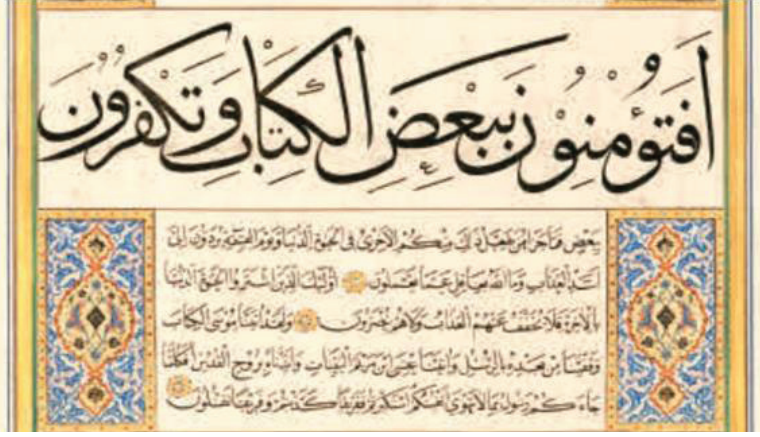 اَفَتُؤْمِنُونَ بِبَعْضِ الْكِتَابِ وَتَكْفُرُونَ
بِبَعْضٍ فما جزاء من يفعل ذلك منكم الا خزى فى الحيوة الدنيا ويوم القيمة يردون الى
اشد العذاب وما الله بغافل عما تعملون اولئك الذين اشتروا الحيوة الدنيا
بالاخرة فلا يخفف عنهم العذاب ولا هم ينصرون ولقد اتينا موسى الكتاب
وقفينا من بعده بالرسل واتينا عيسى ابن مريم البينات وايدناه بروح القدس افكلما
جاءكم رسول بما لا تهوى انفسكم استكبرتم ففريقا كذبتم وفريقا تقتلون